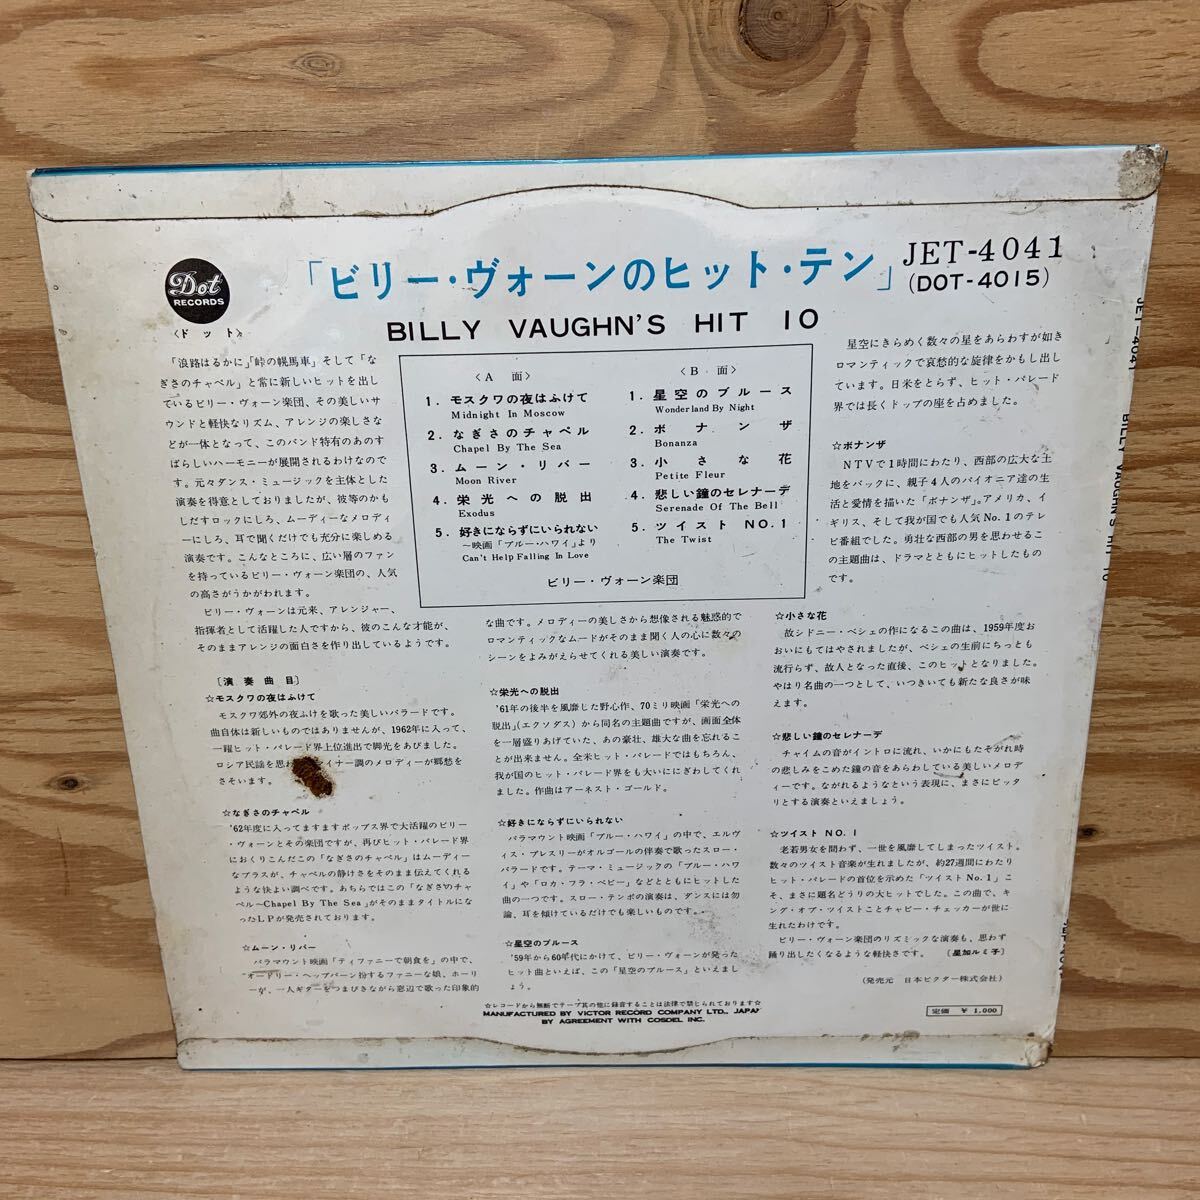 Dot
RECORDS
〈ドット〉
「ビリー・ヴォーンのヒット・テン」
JET-4041
(DOT-4015)
BILLY VAUGHN'S HIT 10
「浪路はるかに」「峠の幌馬車」そして「な
ぎさのチャペル」と常に新しいヒットを出し
ているビリー・ヴォーン楽団、その美しいサ
ウンドと軽快なリズム、アレンジの楽しさな
どが一体となって、このバンド特有のあのす
ばらしいハーモニーが展開されるわけなので
す。元々ダンス・ミュージックを主体とした
演奏を得意としておりましたが、彼等のかも
しだすロックにしろ、ムーディーなメロディ
ーにしろ、耳で聞くだけでも充分に楽しめる
演奏です。こんなところに、広い層のファン
を持っているビリー・ヴォーン楽団の、人気
の高さがうかがわれます。
ビリー・ヴォーンは元来、アレンジャー、
指揮者として活躍した人ですから、彼のこんな才能が、
そのままアレンジの面白さを作り出しているようです。
〈A 面〉
1. モスクワの夜はふけて
Midnight In Moscow
2. なぎさのチャペル
Chapel By The Sea
3. ムーン・リバー
Moon River
4. 栄光への脱出
Exodus
5. 好きにならずにいられない
〜映画「ブルー・ハワイ」より
Can't Help Falling In Love
〈B 面〉
1. 星空のブルース
Wonderland By Night
2. ボナンザ
Bonanza
3. 小さな花
Petite Fleur
4. 悲しい鐘のセレナーデ
Serenade Of The Bell
5. ツイスト NO.1
The Twist
ビリー・ヴォーン楽団
〔演奏曲目〕
☆モスクワの夜はふけて
モスクワ郊外の夜ふけを歌った美しいバラードです。
曲自体は新しいものではありませんが、1962年に入って、
一躍ヒット・パレード界上位進出で脚光をあびました。
ロシア民謡を思わ イナー調のメロディーが郷愁を
さそいます。
☆なぎさのチャペル
'62年度に入ってますますポップス界で大活躍のビリー
・ヴォーンとその楽団ですが、再びヒット・パレード界
におくりこんだこの「なぎさのチャペル」はムーディー
なブラスが、チャペルの静けさをそのまま伝えてくれ
るような快よい調べです。あちらではこの「なぎさのチャ
ペル〜Chapel By The Sea」がそのままタイトルにな
ったLPが発売されております。
☆ムーン・リバー
パラマウント映画「ティファニーで朝食を」の中で、
オードリー・ヘップバーン扮するファニーな娘、ホーリ
ーが、一人ギターをつまびきながら窓辺で歌った印象的
な曲です。メロディーの美しさから想像される魅惑的で
ロマンティックなムードがそのまま聞く人の心に数々の
シーンをよみがえらせてくれる美しい演奏です。
☆栄光への脱出
'61年の後半を風靡した野心作、70ミリ映画「栄光への
脱出」(エクソダス)から同名の主題曲ですが、画面全体
を一層盛りあげていた、あの豪壮、雄大な曲を忘れるこ
とが出来ません。全米ヒット・パレードではもちろん、
我が国のヒット・パレード界をも大いににぎわしてくれ
ました。作曲はアーネスト・ゴールド。
☆好きにならずにいられない
パラマウント映画「ブルー・ハワイ」の中で、エルヴ
ィス・プレスリーがオルゴールの伴奏で歌ったスロー・
バラードです。テーマ・ミュージックの「ブルー・ハワ
イ」や「ロカ・フラ・ベビー」などとともにヒットした
曲の一つです。スロー・テンポの演奏は、ダンスには勿
論、耳を傾けているだけでも楽しいものです。
☆星空のブルース
'59年から60年代にかけて、ビリー・ヴォーンが発った
ヒット曲といえば、この「星空のブルース」といえまし
ょう。
星空にきらめく数々の星をあらわすが如き
ロマンティックで哀愁的な旋律をかもし出し
ています。日米をとらず、ヒット・パレード
界では長くトップの座を占めました。
☆ボナンザ
NTVで1時間にわたり、西部の広大な土
地をバックに、親子4人のパイオニア達の生
活と愛情を描いた「ボナンザ」。アメリカ、イ
ギリス、そして我が国でも人気No.1のテレ
ビ番組でした。勇壮な西部の男を思わせるこ
の主題曲は、ドラマとともにヒットしたもの
です。
☆小さな花
故シドニー・ベシェの作になるこの曲は、1959年度お
おいにもてはやされましたが、ベシェの生前にちっとも
流行らず、故人となった直後、このヒットとなりました。
やはり名曲の一つとして、いついきいても新たな良さが味
えます。
☆悲しい鐘のセレナーデ
チャイムの音がイントロに流れ、いかにもたそがれ時
の悲しみをこめた鐘の音をあらわしている美しいメロデ
ィーです。ながれるようなという表現に、まさにピッタ
リとする演奏といえましょう。
☆ツイスト NO.1
老若男女を問わず、一世を風靡してしまったツイスト。
数々のツイスト音楽が生れましたが、約27週間にわたり
ヒット・パレードの首位を示めた「ツイストNo.1」こ
そ、まさに題名どうりの大ヒットでした。この曲で、キ
ング・オブ・ツイストことチャビー・チェッカーが世に
生れたわけです。
ビリー・ヴォーン楽団のリズミックな演奏も、思わず
踊り出したくなるような軽快さです。〔星加ルミ子〕
(発売元 日本ビクター株式会社)
☆レコードから無断でテープ其の他に録音することは法律で禁じられております☆
MANUFACTURED BY VICTOR RECORD COMPANY LTD., JAPAN
BY AGREEMENT WITH COSDEL INC.
定価 ¥1,000
JET-4041 BILLY VAUGHN'S HIT 10